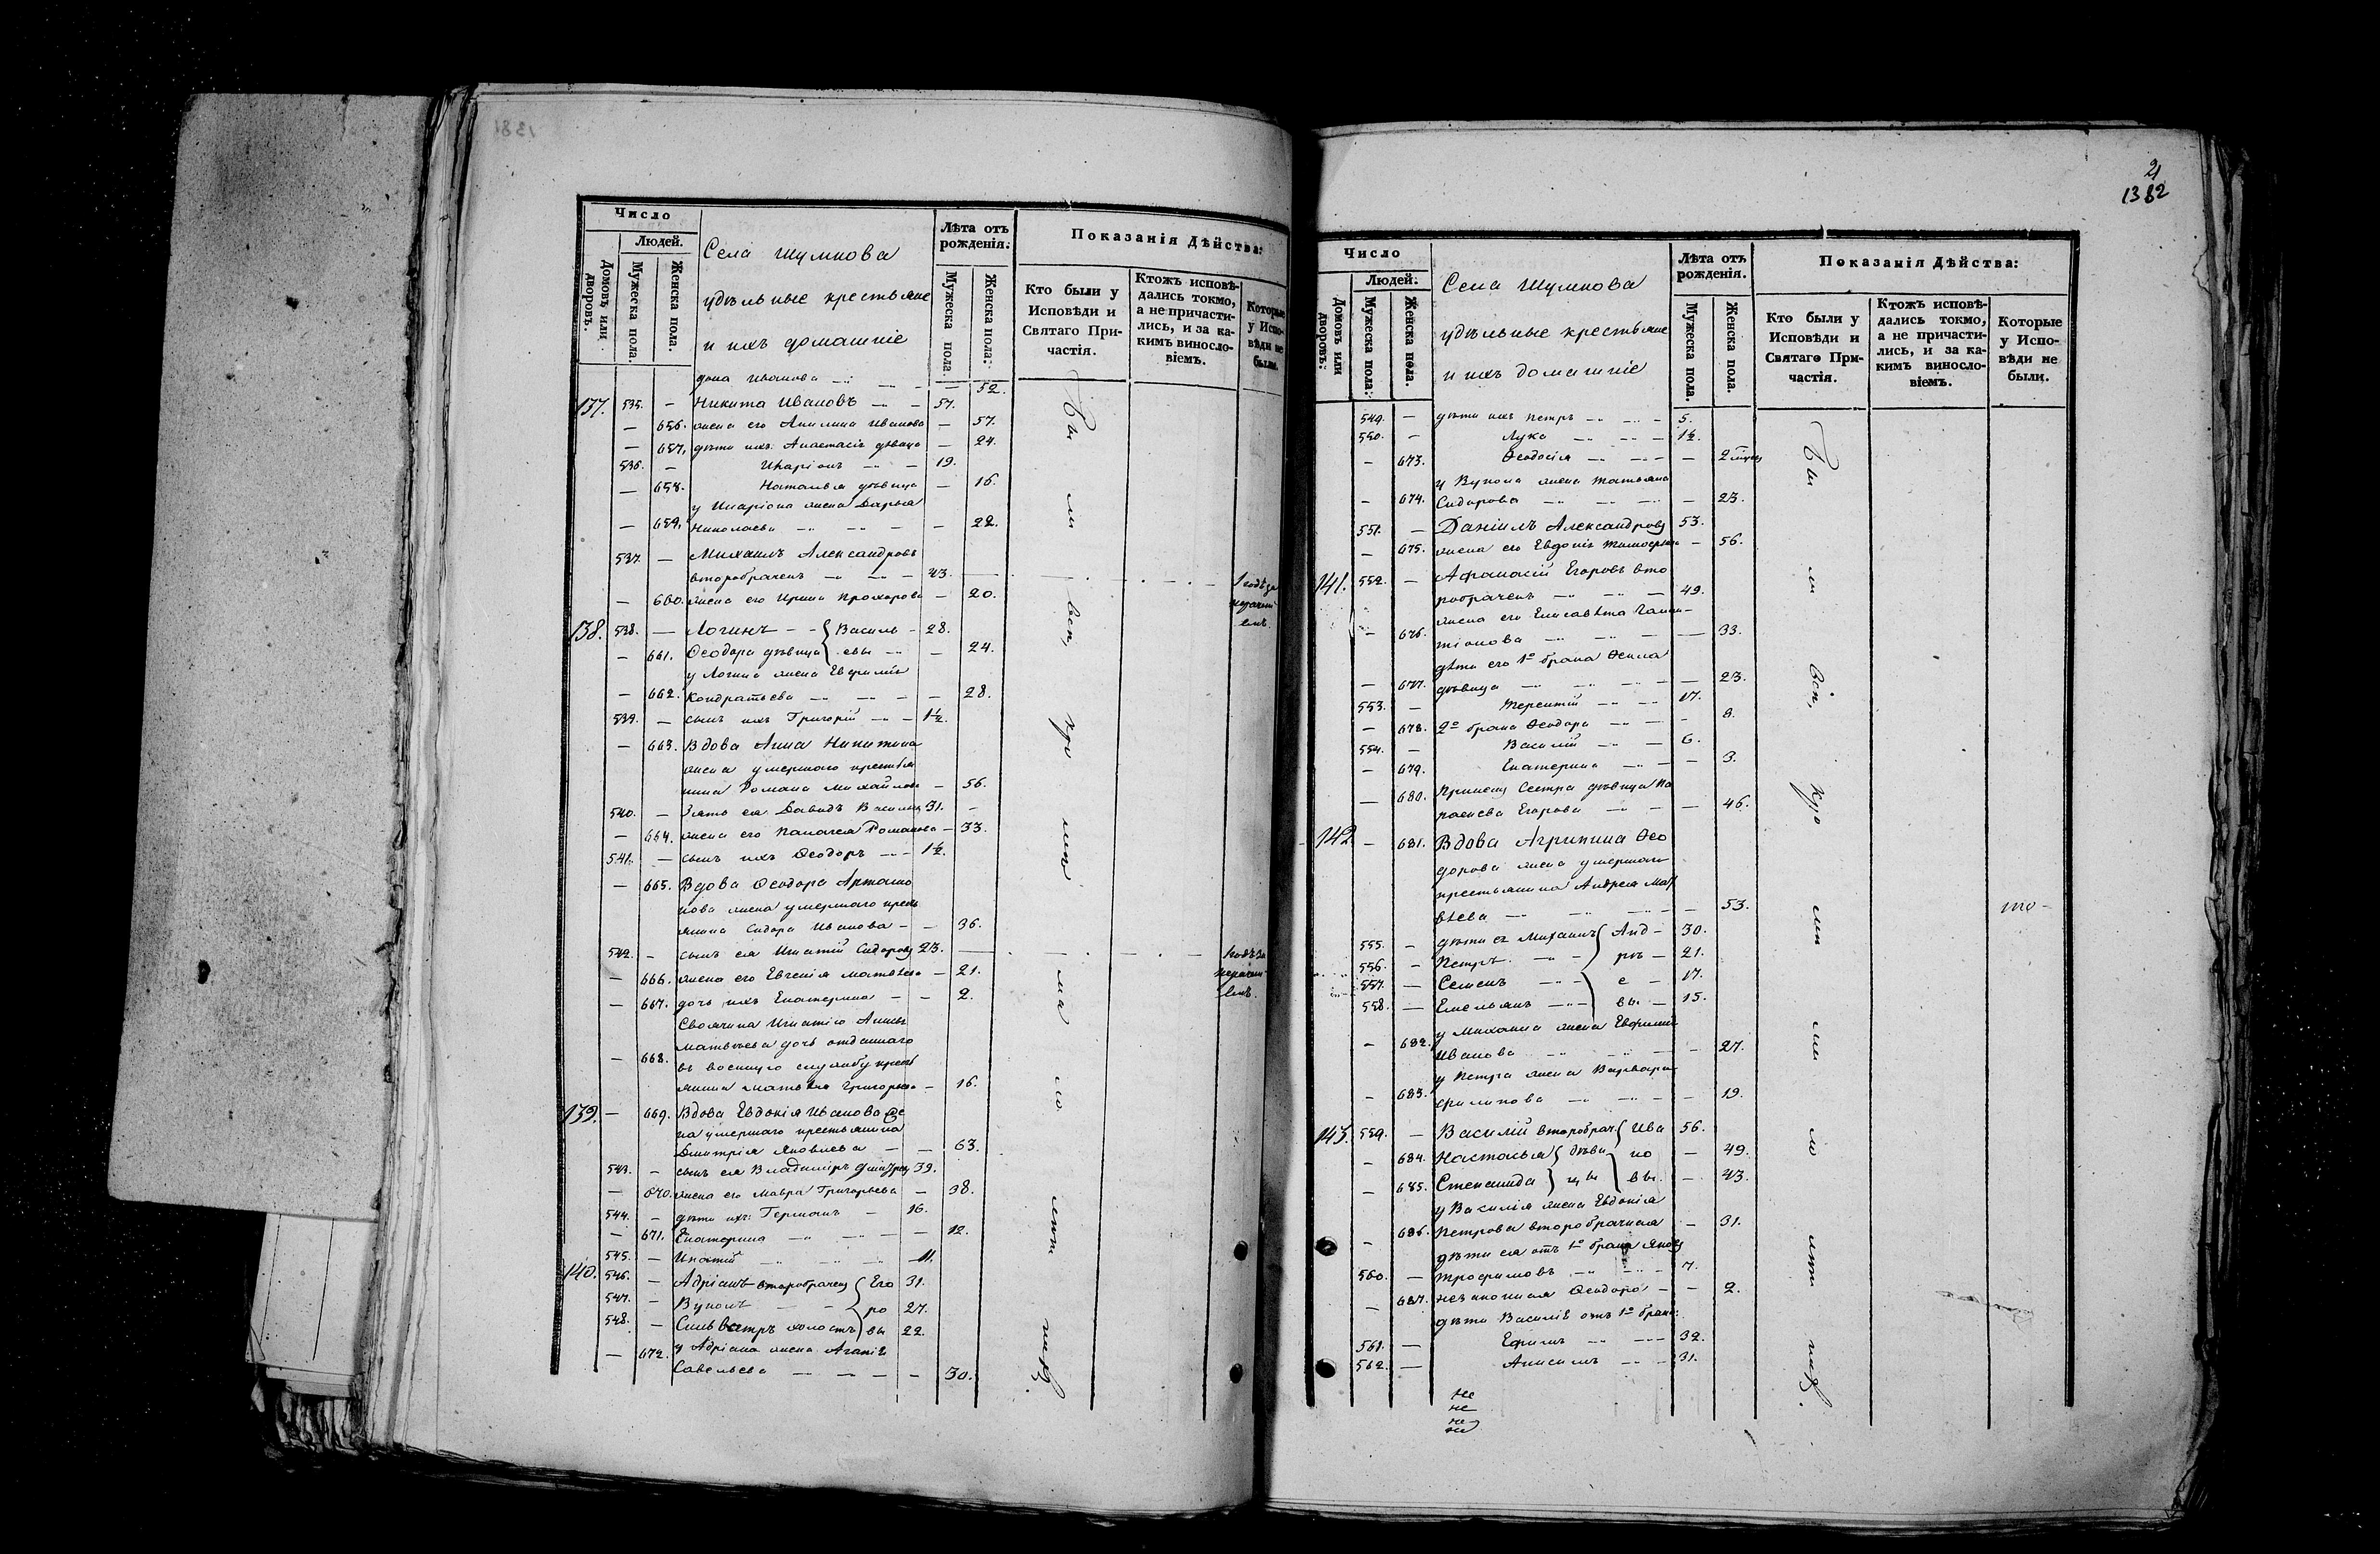 1381
Число
Людей.
Домовъ или дворовъ.
Мужеска пола.
Женска пола.
Села Шумкова
удѣльные крестьяне
и ихъ домашніе
Лѣта отъ рожденія.
Мужеска пола.
Женска пола.
Показанія Дѣйства:
Кто были у Исповѣди и Святаго Причастія.
Ктожъ исповѣдались токмо, а не причастились, и за какимъ винословіемъ.
Которые у Исповѣди не были.
Иванова — — — 52.
137. 535. — Никита Ивановъ — — 57.
— 656. жена его Акилина Иванова — 57.
— 657. дѣти ихъ: Анастасія дѣвица — 24.
536. — Иларіонъ — — 19.
— 658. Наталья дѣвица — 16.
у Иларіона жена Дарья
— 659. Николаева — — — 22.
537. — Михаилъ Александровъ
второбраченъ — — 43.
— 660. жена его Ирина Прохорова — 20.
138. 538. — Логинъ — — Василь — 28.
— 661. Ѳеодора дѣвица евы — — 24.
у Логина жена Евфимія
— 662. Кондратьева — — — 28.
539. — сынъ ихъ Григорій — — 1½.
— 663. Вдова Анна Никитина
жена умершаго крестья
нина Романа Михайлова — 56.
540. — Зять ея Давидъ Васильевъ 31. —
— 664. жена его Пелагея Романова — 33.
541. — сынъ ихъ Ѳеодоръ — — 1½.
— 665. Вдова Ѳеодора Артамо
нова жена умершаго кресть
янина Сидора Иванова — — 36.
542. — сынъ ея Игнатій Сидоровъ 23.
— 666. жена его Евгенія Матвѣева — 21.
— 667. дочь ихъ Екатерина — — 2.
Своячина Игнатію Анисья
Матвѣева дочь отданнаго
— 668. въ военную службу кресть
янина Матвѣя Григорьева — 16.
139. — 669. Вдова Евдокія Иванова же
на умершаго крестьянина
Дмитрія Яковлева — — 63.
543. — сынъ ея Владиміръ Дмитріевъ 39.
— 670. жена его Мавра Григорьева — 38.
544. — дѣти ихъ: Германъ — 16.
— 671. Екатерина — — — — 12.
545. — Ипатій — — — 11.
140. 546. — Адріанъ второбраченъ Его 31.
547. — Вуколъ — — ро 27.
548. — Сильвестръ холостъ вы 22.
— 672. у Адріана жена Агапія
Савельева — — — — 30.
Бы ли всп, кро мп ма ю лют пир.
1 годъ за
нераченi
емъ.
1 годъ за
нерачені
емъ.
21
1382
Число
Людей.
Домовъ или дворовъ.
Мужеска пола.
Женска пола.
Села Шумкова
удѣльные крестьяне
и ихъ домашніе
Лѣта отъ рожденія.
Мужеска пола.
Женска пола.
Показанія Дѣйства:
Кто были у Исповѣди и Святаго Причастія.
Ктожъ исповѣдались токмо, а не причастились, и за какимъ винословіемъ.
Которые у Исповѣди не были.
549. — дѣти ихъ Петръ — — — 5.
550. — Лука — — — 1½.
— 673. Ѳеодосія — — — — 2
у Вукола жена Татьяна
— 674. Сидорова — — — — 23.
551. — Даніилъ Александровъ 53.
— 675. жена его Евдокія Тимофѣева — 56.
141. 552. — Афанасій Егоровъ вто
роб­раченъ — — — 49.
жена его Елисавѣта
— 676. тіонова — — — — 33.
дѣти его 1го брака Ѳекла
— 677. дѣвица — — — — 23.
553. — Терентій — — 17.
— 678. 2го брака Ѳеодора — — — 8.
554. — Василій — — 6.
— 679. Екатерина — — — 3.
— 680. Сестра дѣвица Па
раскева Егорова — — — 46.
142. — 681. Вдова Агрипина Ѳео
дорова жена умершаго
крестьянина Андрея Мат
вѣева — — — — 53.
555. — дѣти ея Михаилъ Анд — 30.
556. — Петръ — — рѣ — 21.
557. — Семенъ — — е — 17.
558. — Емельянъ — — вы — 15.
у Михаила жена Евфимія
— 682. Иванова — — — — 27.
у Петра жена Варвара
— 683. Филипова — — — — 19.
143. 559. — Василій второбрач. Ива 56.
— 684. Настасья дѣви но — 49.
— 685. Степанида цы вы. — 43.
у Василія жена Евдокія
— 686. Петрова второбрачная — 31.
дѣти ея отъ 1го брака Яковъ
560. — Трофимовъ — — — 7.
— 687. незаконная Ѳеодора — — 2.
дѣти Василія отъ 1го брака:
561. — Ефимъ — — — 32.
562. — Анисимъ — — 31.
не
не
не
не